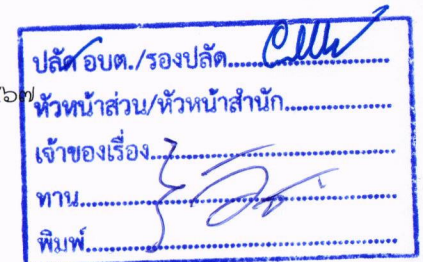 ปลัด อบต./รองปลัด
๖๗
หัวหน้าส่วน/หัวหน้าสำนัก
เจ้าของเรื่อง
ทาน
พิมพ์